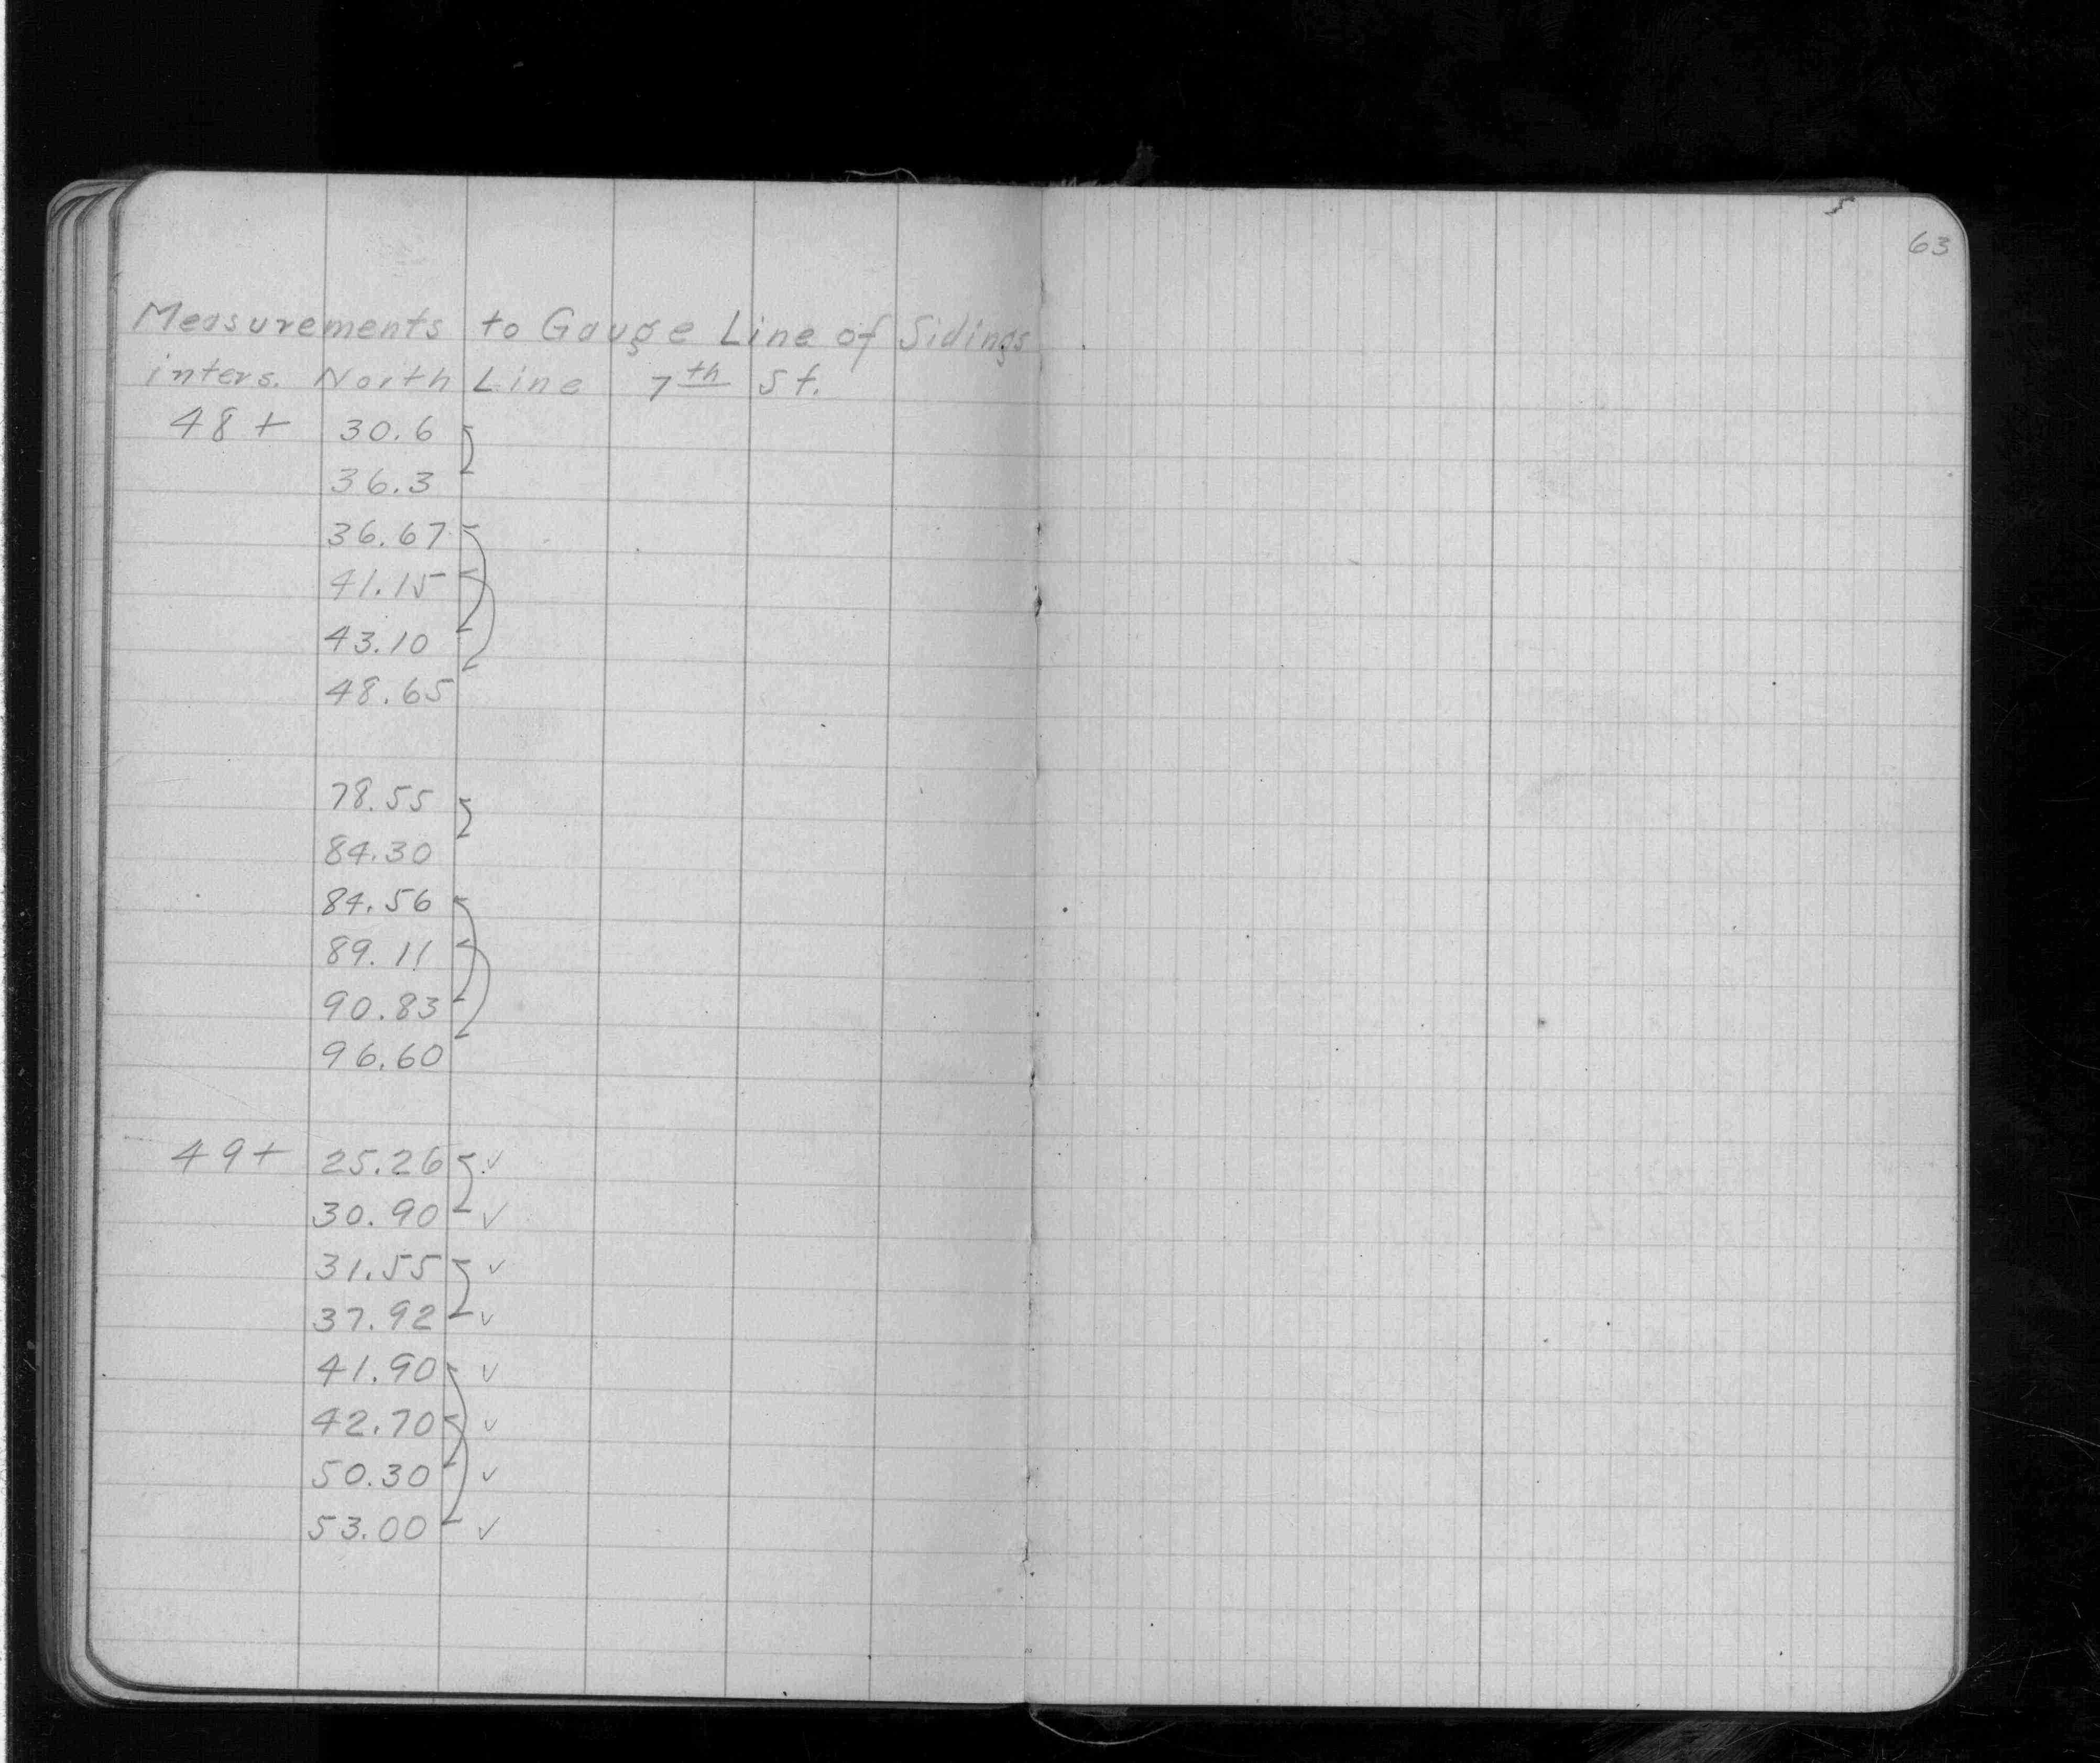 63
Measurements to Gauge Line of Sidings
inters. North Line 7th St.
48+ 30.6
36.3
36.67
41.15
43.10
48.65
78.55
84.30
84.56
89.11
90.83
96.60
49+ 25.26 ✓
30.90 ✓
31.55 ✓
37.92 ✓
41.90 ✓
42.70 ✓
50.30 ✓
53.00 ✓